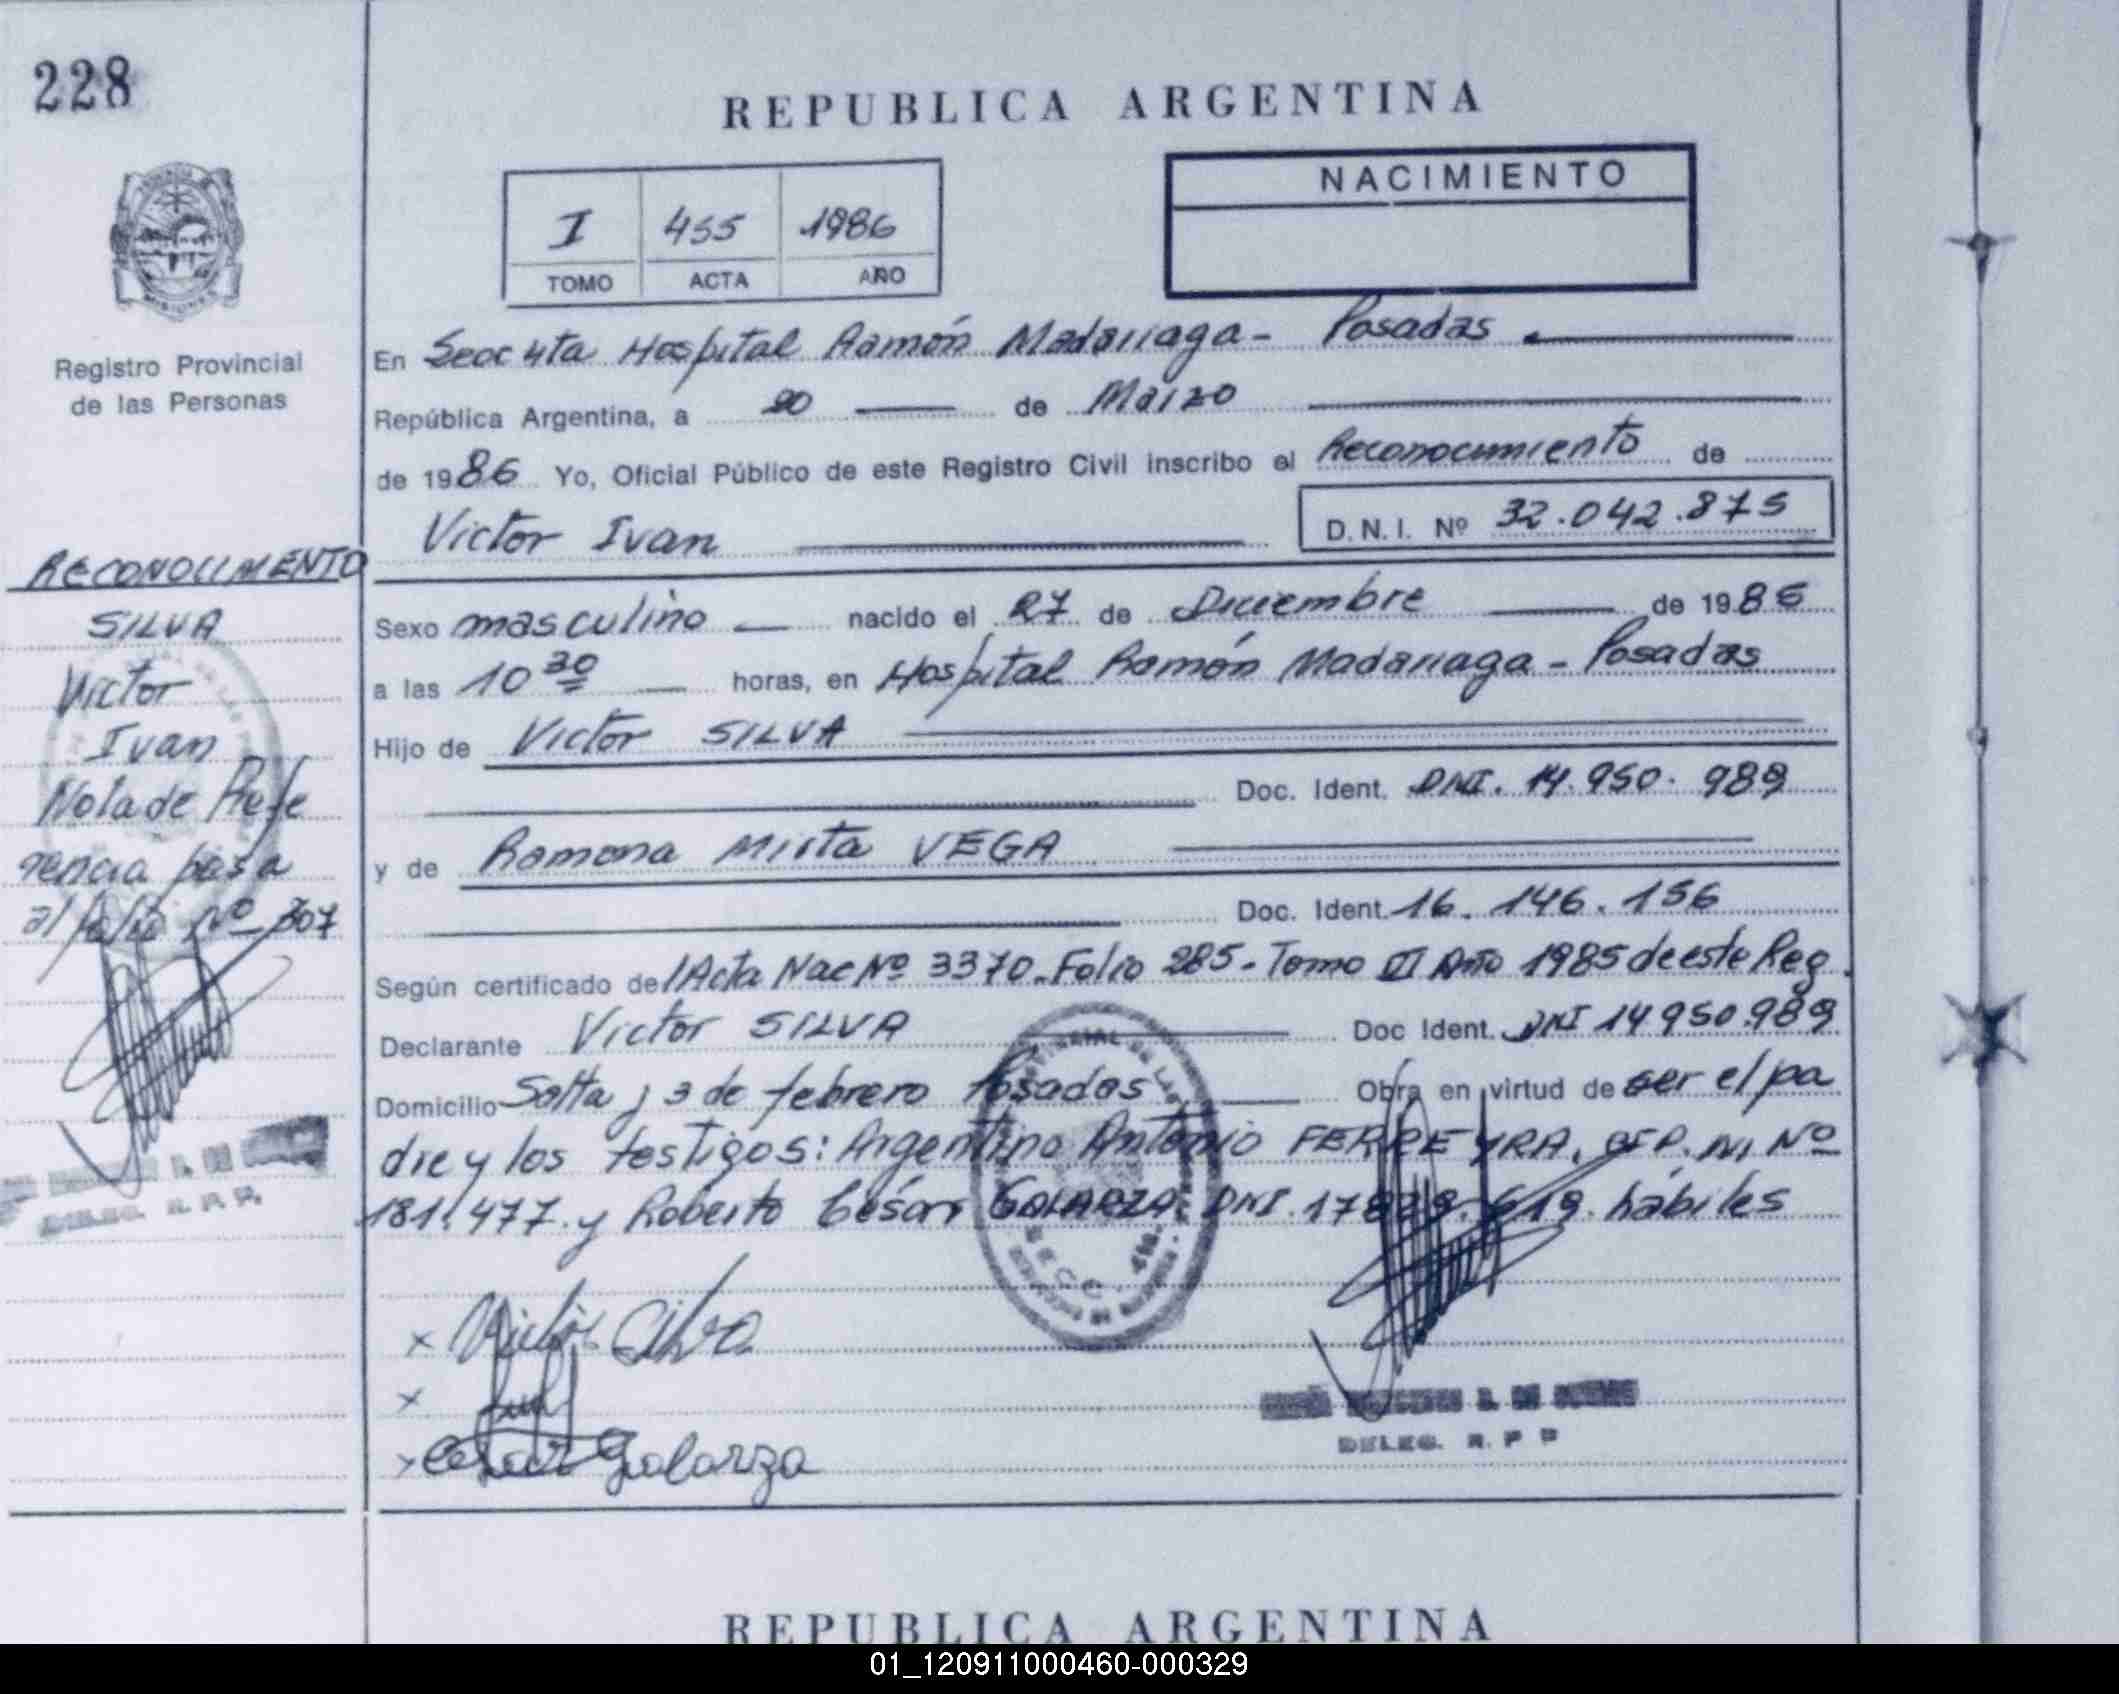 228
REPUBLICA ARGENTINA
NACIMIENTO
I 455 1986
TOMO ACTA AÑO
Registro Provincial
de las Personas
En Secc 4ta Hospital Ramón Madariaga - Posadas
República Argentina, a 20 de Marzo
de 1986 Yo, Oficial Público de este Registro Civil inscribo el Reconocimiento de
Victor Ivan D.N.I. Nº 32.042.875
RECONOCIMIENTO
SILVA
Victor
Ivan
Nota de Refe
rencia pasa
al folio Nº 307
Sexo masculino nacido el 27 de Diciembre de 1985
a las 10 30 horas, en Hospital Ramón Madariaga - Posadas
Hijo de Victor SILVA
Doc. Ident. DNI. 14.950.989
y de Ramona Mirta VEGA
Doc. Ident. 16.146.156
Según certificado de/Acta Nac Nº 3370-Folio 285-Tomo Año 1985 de este Reg.
Declarante Victor SILVA Doc Ident. DNI 14950.989
Domicilio Salta y 3 de febrero Posadas Obra en virtud de ser el pa
dre y los testigos: Argentino Antonio FERREYRA, Nº
181.477. y Roberto César GALARZA DNI. hábiles
x Victor Silva
x
x Cesar Galarza
DELEG. R. P. P.
DELEG. R. P. P
REPUBLICA ARGENTINA
01_120911000460-000329